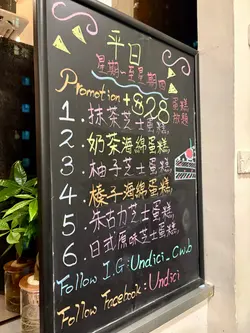 平日
星期一至星期四
Promotion +$28 蛋糕
1. 抹茶芝士蛋糕
2. 奶茶海綿蛋糕
3. 柚子芝士蛋糕
4. 榛子海綿蛋糕
5. 朱古力芝士蛋糕
6. 日式原味芝士蛋糕
Follow I.G: Undici_cwb
Follow Facebook: Undici